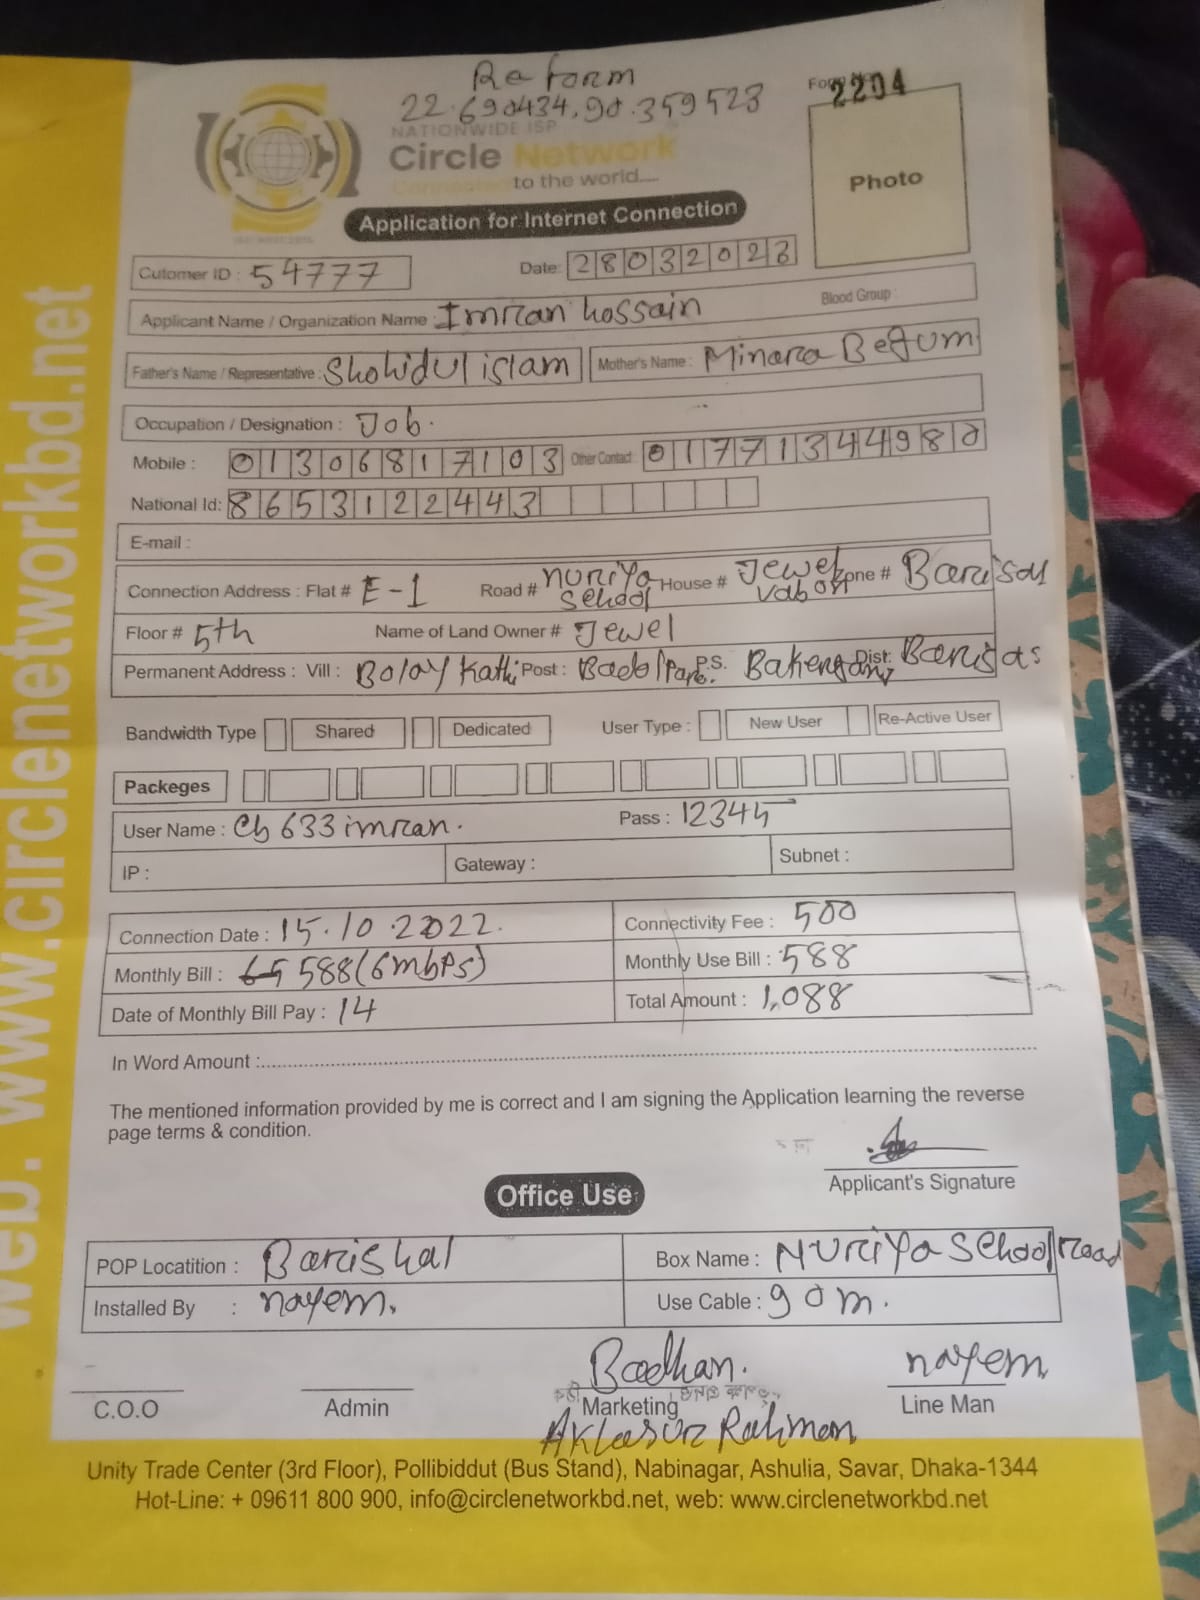 Re form
Form No 2204
22.690434, 90.359523
NATIONWIDE ISP
Circle Network
Connected to the world....
Photo
Application for Internet Connection
Cutomer ID : 54777 Date: 28032023
Applicant Name / Organization Name : Imran hossain Blood Group :
Father's Name / Representative : Shohidul islam Mother's Name : Minara Begum
Occupation / Designation : Job.
Mobile : 01306817103 Other Contact : 01771344980
National Id: 8653122443
E-mail :
Connection Address : Flat # E-1 Road # nuriya School House # Jewel vabon Zone # Barisal
Floor # 5th Name of Land Owner # Jewel
Permanent Address : Vill : Bolay Kathi Post : P.S. Dist: Barisal
Bandwidth Type Shared Dedicated User Type : New User Re-Active User
Packeges
User Name : 633 imran. Pass : 12345
IP : Gateway : Subnet :
Connection Date : 15.10.2022. Connectivity Fee : 500
Monthly Bill : 588 (6mbps) Monthly Use Bill : 588
Date of Monthly Bill Pay : 14 Total Amount : 1,088
In Word Amount :
The mentioned information provided by me is correct and I am signing the Application learning the reverse
page terms & condition.
Applicant's Signature
Office Use
POP Locatition : Barishal Box Name : Nuriya School road
Installed By : nayem. Use Cable : 90m.
Badhan. nayem
C.O.O Admin Marketing Line Man
Rahman
Unity Trade Center (3rd Floor), Pollibiddut (Bus Stand), Nabinagar, Ashulia, Savar, Dhaka-1344
Hot-Line: + 09611 800 900, info@circlenetworkbd.net, web: www.circlenetworkbd.net
web: www.circlenetworkbd.net